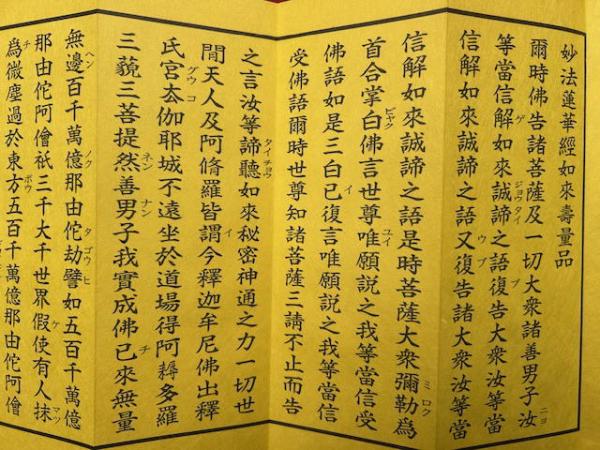 妙法蓮華經如來壽量品
爾時佛告諸菩薩及一切大衆諸善男子汝
ニヨ
等當信解如來誠諦之語復告大衆汝等當
ゲ ジョウタイ ブ
信解如來誠諦之語又復告諸大衆汝等當
ウ ブ
信解如來誠諦之語是時菩薩大衆彌勒爲
ミ ロク
首合掌白佛言世尊唯願說之我等當信受
ビヤク ユイ
佛語如是三白已復言唯願說之我等當信
イ
受佛語爾時世尊知諸菩薩三請不止而告
之言汝等諦聽如來秘密神通之力一切世
タイ チヨウ
閒天人及阿脩羅皆謂今釋迦牟尼佛出釋
イ
氏宮去伽耶城不遠坐於道場得阿耨多羅
グウ コ
三藐三菩提然善男子我實成佛已來無量
ネン ナン チ
無邊百千萬億那由佗劫譬如五百千萬億
ヘン ノク タ ゴウ ヒ
那由佗阿僧祇三千大千世界假使有人抹
ケ マツ
爲微塵過於東方五百千萬億那由佗阿僧
チ ボウ